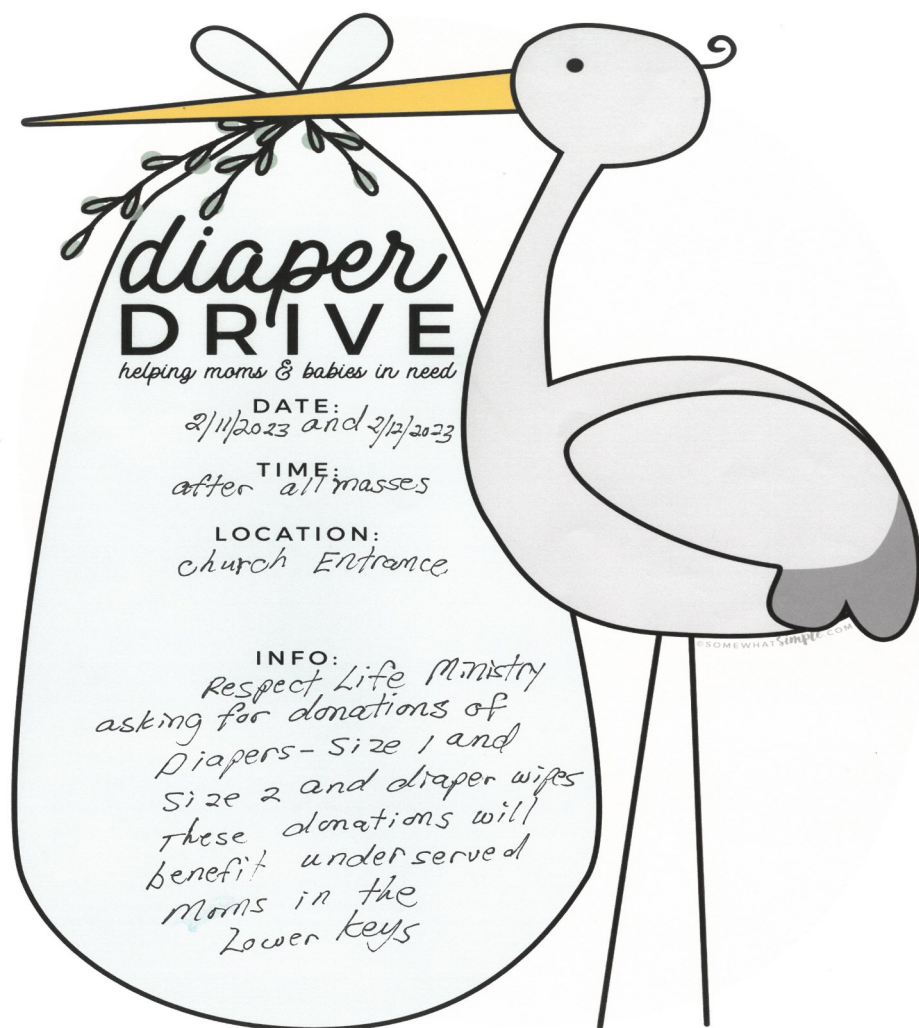 diaper
DRIVE
helping moms & babies in need
DATE:
2/11/2023 and 2/12/2023
TIME:
after all masses
LOCATION:
church Entrance
©SOMEWHATSimple.COM
INFO:
Respect Life Ministry
asking for donations of
Diapers- Size 1 and
Size 2 and diaper wipes
These donations will
benefit underserved
Moms in the
Lower Keys